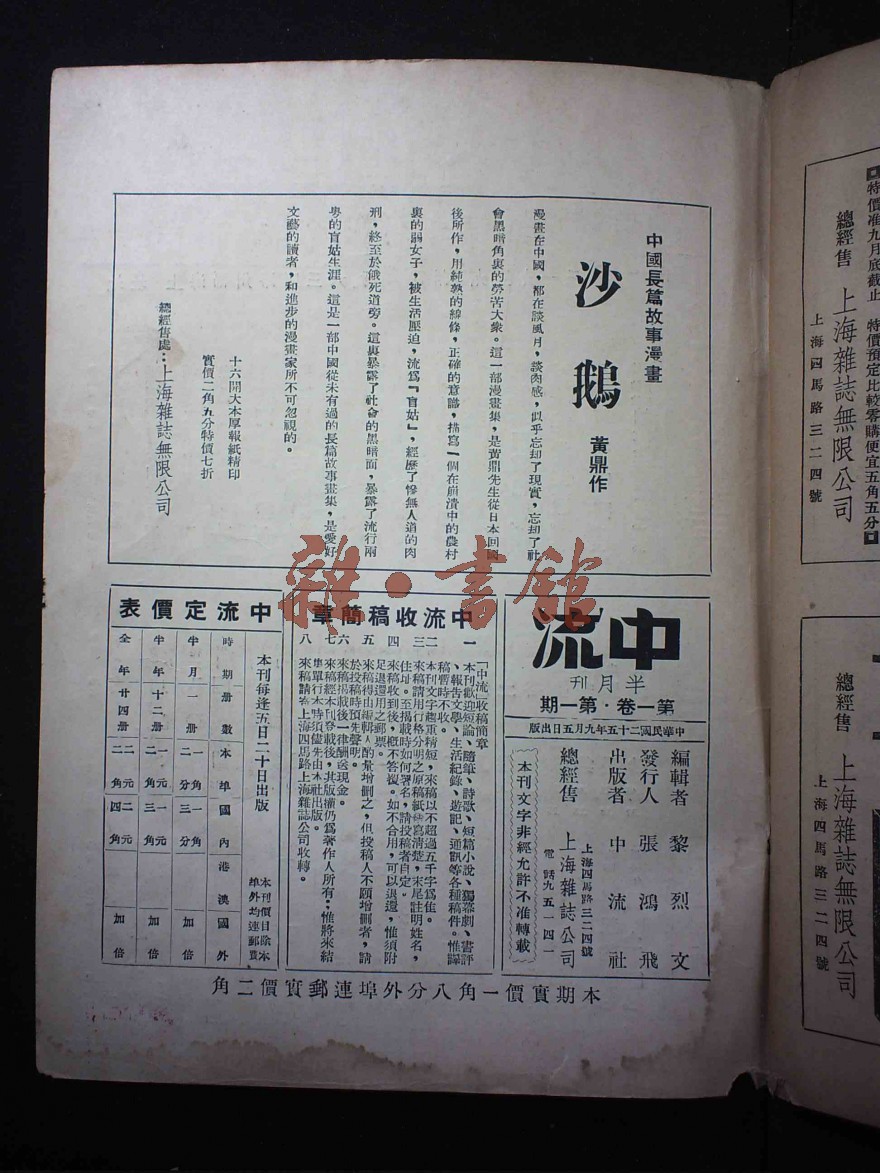 中國長篇故事漫畫
沙鵝
黃鼎作
漫畫在中國，都在談風月，談肉感，似乎忘却了現實，忘却了社
會黑暗角裏的勞苦大衆。這一部漫畫集，是黃鼎先生從日本回國
後所作，用純熟的線條，正確的意識，描寫一個在崩潰中的農村
裏的弱女子，被生活壓迫，流爲『盲姑』，經歷了慘無人道的肉
刑，終至於餓死道旁。這裏暴露了社會的黑暗面，暴露了流行兩
粵的盲姑生涯。這是一部中國從未有過的長篇故事畫集，是愛好
文藝的讀者，和進步的漫畫家所不可忽視的。
十六開大本厚報紙精印
實價二角五分特價七折
總經售處：上海雜誌無限公司
中流
半月刊
第一卷·第一期
中華民國二十五年九月五日出版
編輯者 黎烈文
發行人 張鴻飛
出版者 中流社
上海四馬路三二四號
總經售 上海雜誌公司
電話九五一四一
本刊文字非經允許不准轉載
中流收稿簡章
「中流」收稿簡章
一 本刊歡迎短論、隨筆、詩歌、短篇小說、獨幕劇、書評
、報告文學、生活紀錄、遊記、通訊等各種稿件。惟譯
稿暫時不收。
二 本刊文字趨重精短，來稿以不超過五千字爲佳。
三 來稿請用行格分明之原稿紙繕寫清楚，末尾註明姓名，
住址。至揭載時如何署名，請投稿者自定。
四 來稿收到後，概不答覆。如不合用，可以退還，惟須附
足退還用之郵票。
五 來稿得由編輯人酌量增刪之，但投稿人不願增刪者，請
於投稿時預先聲明。
六 來稿揭載後一律酬送現金。
七 來稿經本刊登載後，其版權仍爲著作人所有；惟將來結
集單行本時須儘先由本社出版。
八 來稿請寄上海四馬路上海雜誌公司收轉。
中流定價表
本刊每逢五日二十日出版
本刊價目除本
埠外均連郵費
時期 冊數 本埠 國內 港澳 國外
半月 一冊 一角二分 一角三分 加倍
半年 十二冊 一元二角 一元三角 加倍
全年 廿四冊 二元二角 二元四角 加倍
本期實價一角八分外埠連郵實價二角
特價准九月底截止 特價預定比較零購便宜五角五分
總經售 上海雜誌無限公司
上海四馬路三二四號
總經售 上海雜誌無限公司
上海四馬路三二四號
雜·書館